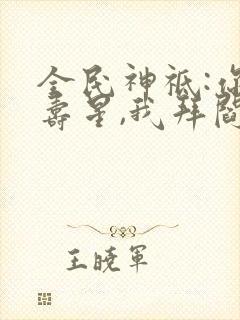 全民神祇:你
寿星,我拜阎
王晓军